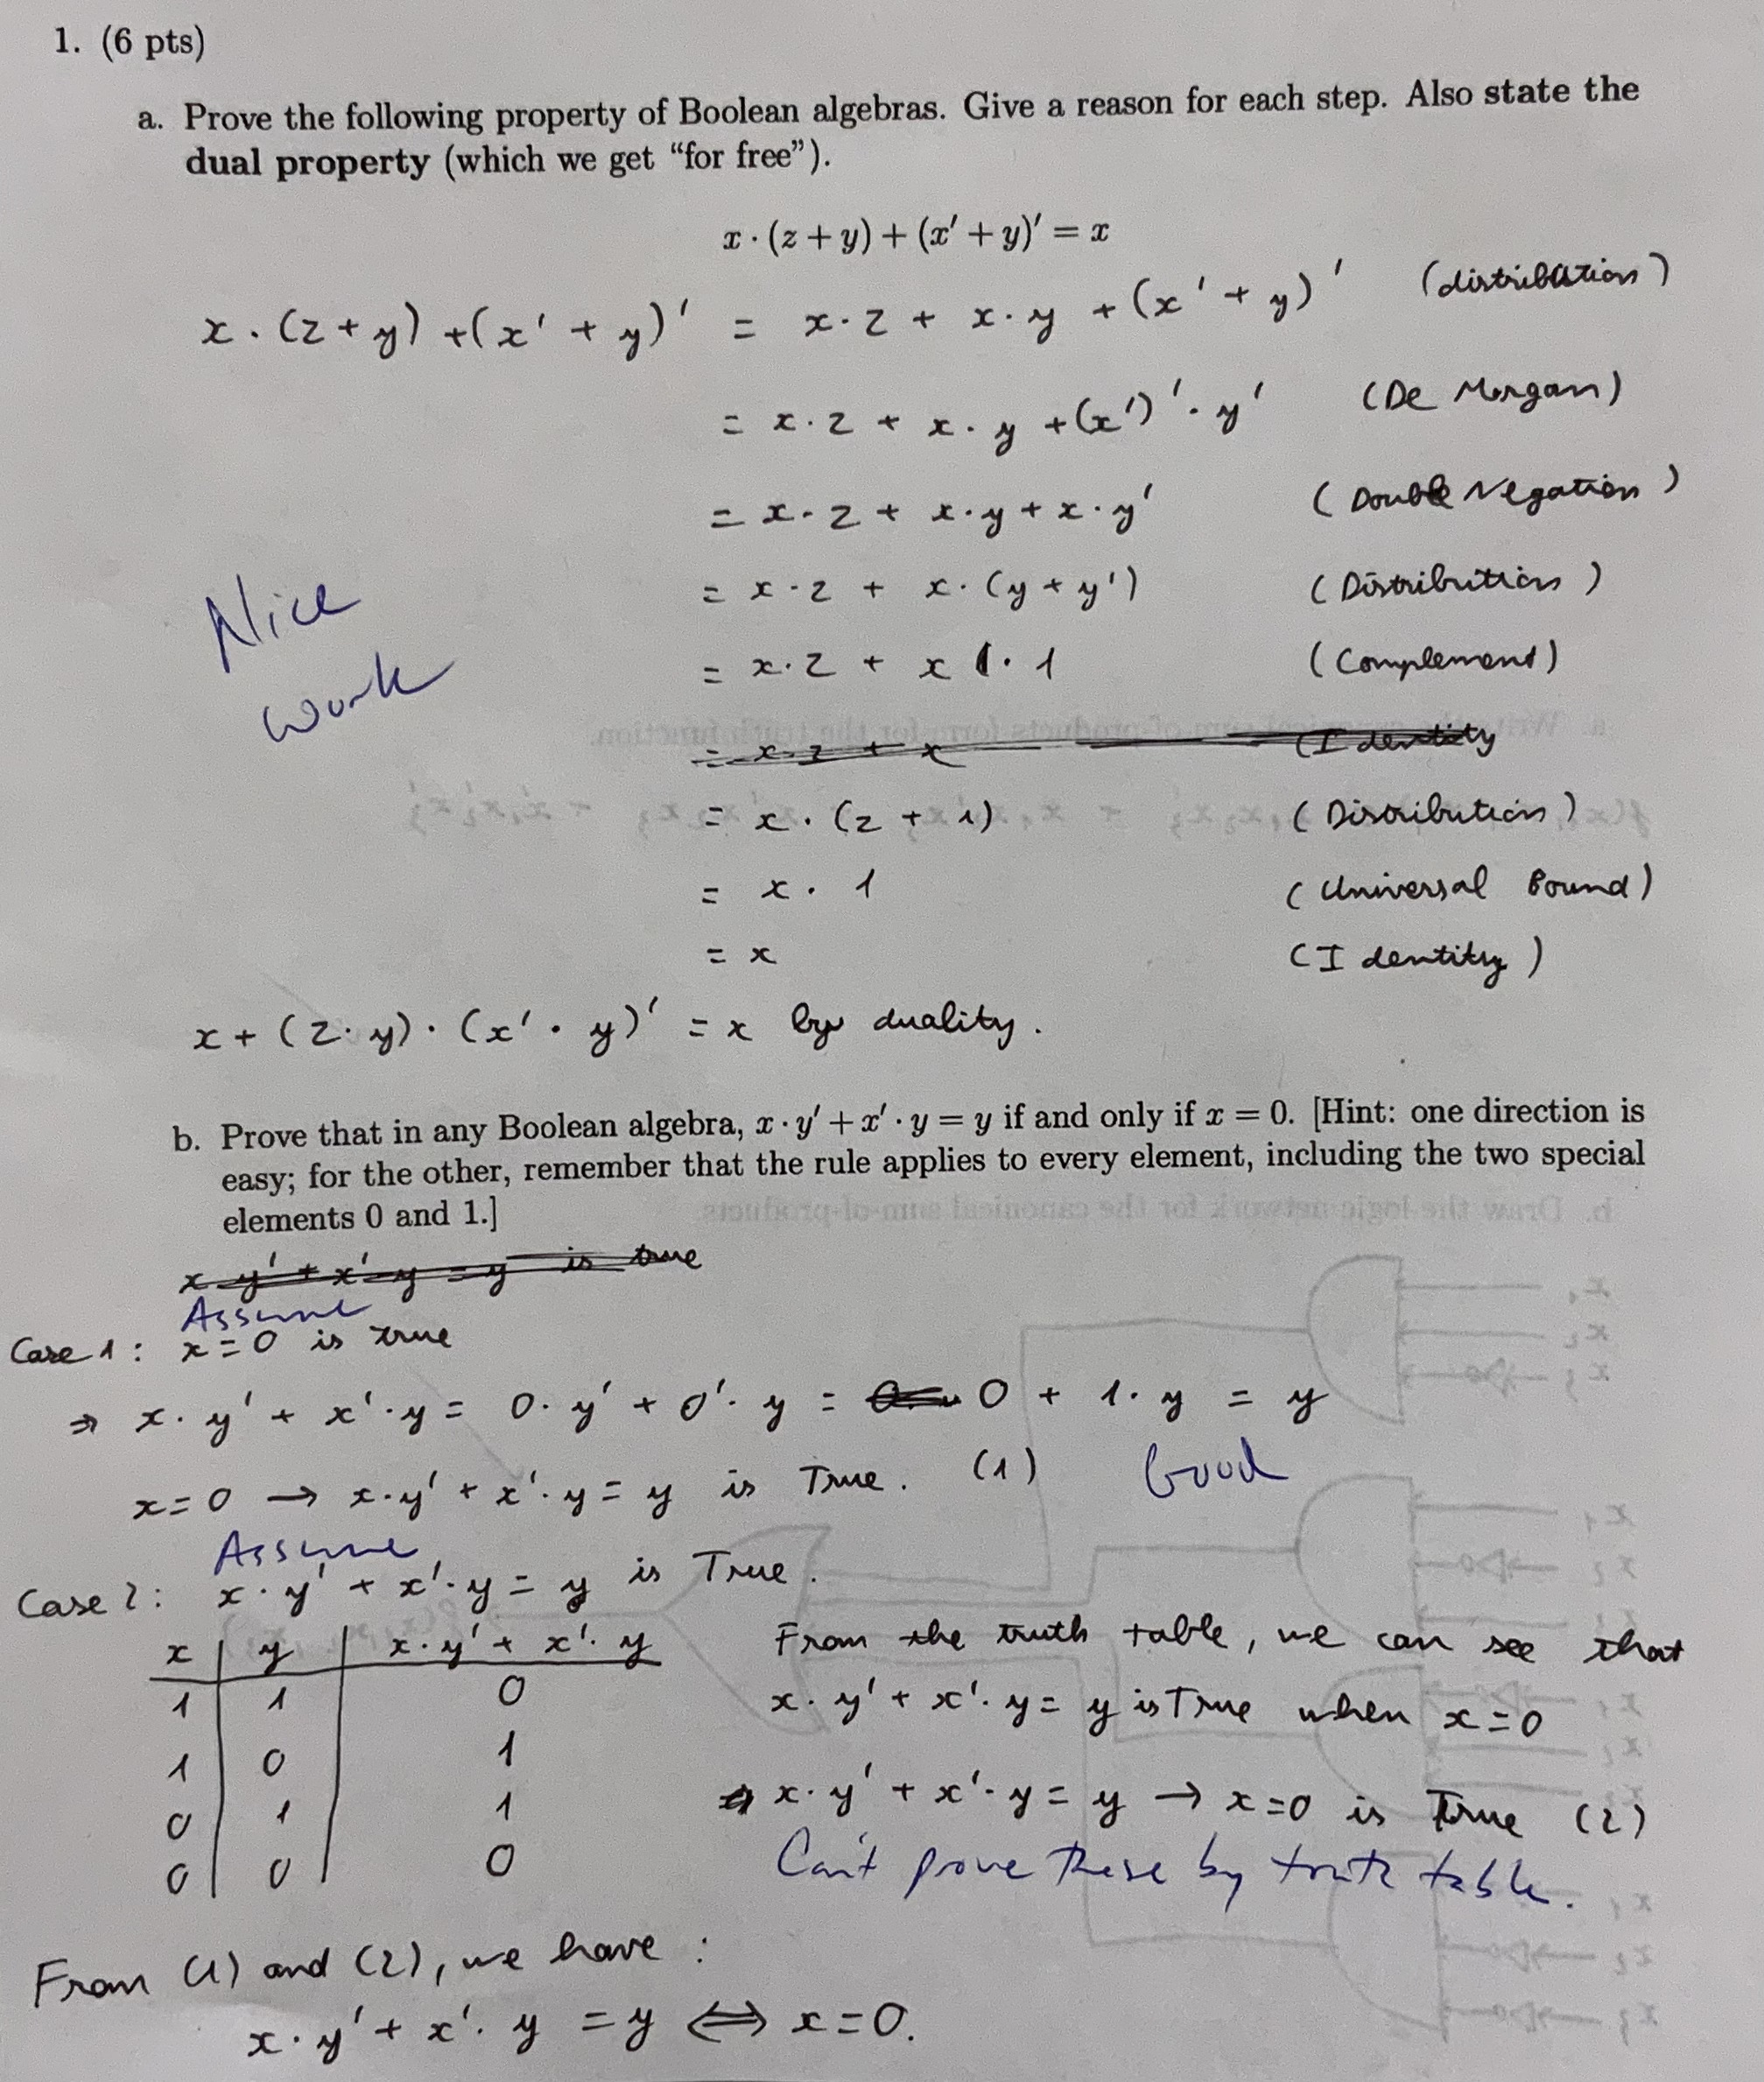 1. (6 pts)
a. Prove the following property of Boolean algebras. Give a reason for each step. Also state the
dual property (which we get “for free”).
x · (z + y) + (x′ + y)′ = x
x · (z + y) + (x′ + y)′ = x · z + x · y + (x′ + y)′ (distribution)
= x · z + x · y + (x′)′ · y′ (De Morgan)
= x · z + x · y + x · y′ (Double Negation)
= x · z + x · (y + y′) (Distribution)
= x · z + x · 1 (Complement)
= x · z + x (Identity
= x · (z + 1) (Distribution)
= x · 1 (Universal Bound)
= x (Identity)
Nice
work
x + (z · y) · (x′ · y)′ = x by duality.
b. Prove that in any Boolean algebra, x · y′ + x′ · y = y if and only if x = 0. [Hint: one direction is
easy; for the other, remember that the rule applies to every element, including the two special
elements 0 and 1.]
x y′ + x′ y = y is true
Assume
Case 1: x = 0 is true
⇒ x · y′ + x′ · y = 0 · y′ + 0′ · y = 0 + 1 · y = y
x = 0 → x · y′ + x′ · y = y is True. (1) Good
Assume
Case 2: x · y′ + x′ · y = y is True.
x y x · y′ + x′ · y
1 1 0
1 0 1
0 1 1
0 0 0
From the truth table, we can see that
x · y′ + x′ · y = y is True when x = 0
x · y′ + x′ · y = y → x = 0 is True (2)
Can't prove these by truth table.
From (1) and (2), we have :
x · y′ + x′ · y = y ⟺ x = 0.